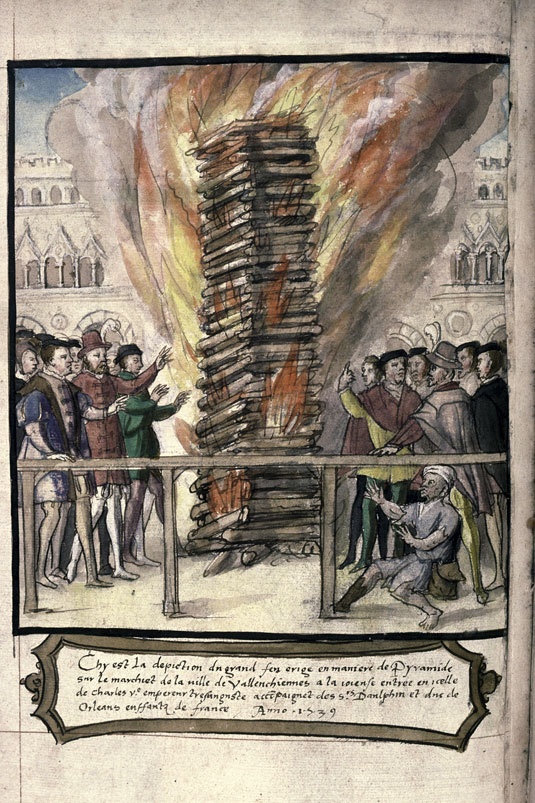 Chy est La depiction du grand feu erige en maniere de Pyramide
sur le marchiet de la ville de Vallenchiennes a la ioieuse entree en icelle
de Charles V.e empereur tresauguste accõpaignet des S.rs Daulphin et duc de
Orleans enffantz de france Anno 1539